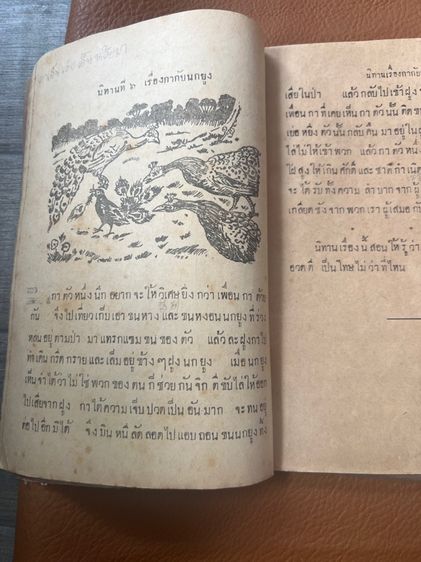 นิทานที่ ๖ เรื่องกากับนกยูง
กาตัวหนึ่งนึกอยากจะให้วิเศษยิ่งกว่าเพื่อนกาด้วย
กัน จึงไปเที่ยวเก็บเอาขนหางและขนหงอนนกยูงที่ร่วง
หล่นอยู่ตามป่า มาแทรกแซมขนของตัว แล้วละฝูงกาไป
ทำเดินกรีดกรายและเล็มอยู่ข้าง ๆ ฝูงนกยูง เมื่อนกยูง
เห็นจำได้ว่าไม่ใช่พวกของตน ก็ช่วยกันจิกตีขับไล่ให้ออก
ไปเสียจากฝูง กาได้ความเจ็บปวดเป็นอันมาก จะทนอยู่
ต่อไปอีกมิได้ จึงบินหนีลัดลอดไปแอบถอนขนนกยูงทิ้ง
นิทานเรื่องกากับ
เสียในป่า แล้วกลับไปเข้าฝูง
เพื่อนกาที่เคยเห็นกาตัวนั้นคิด
เย่อหยิ่งตัวนั้นกลับคืนมาอยู่ใน
ไล่ไม่ให้เข้าพวก แล้วกาตัวหนึ่
ใฝ่สูงให้เกินศักดิ์และชาติกำเน
จะได้รับทั้งความลำบากจาก
เกลียดชังจากพวกเราผู้เสมอ
นิทานเรื่องนี้สอนให้รู้ว่
อวดดี เป็นโทษไม่ว่าที่ไหน